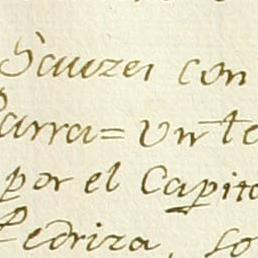 Sauzes con
Parra = Un te
por el Capita
Pedriza, so